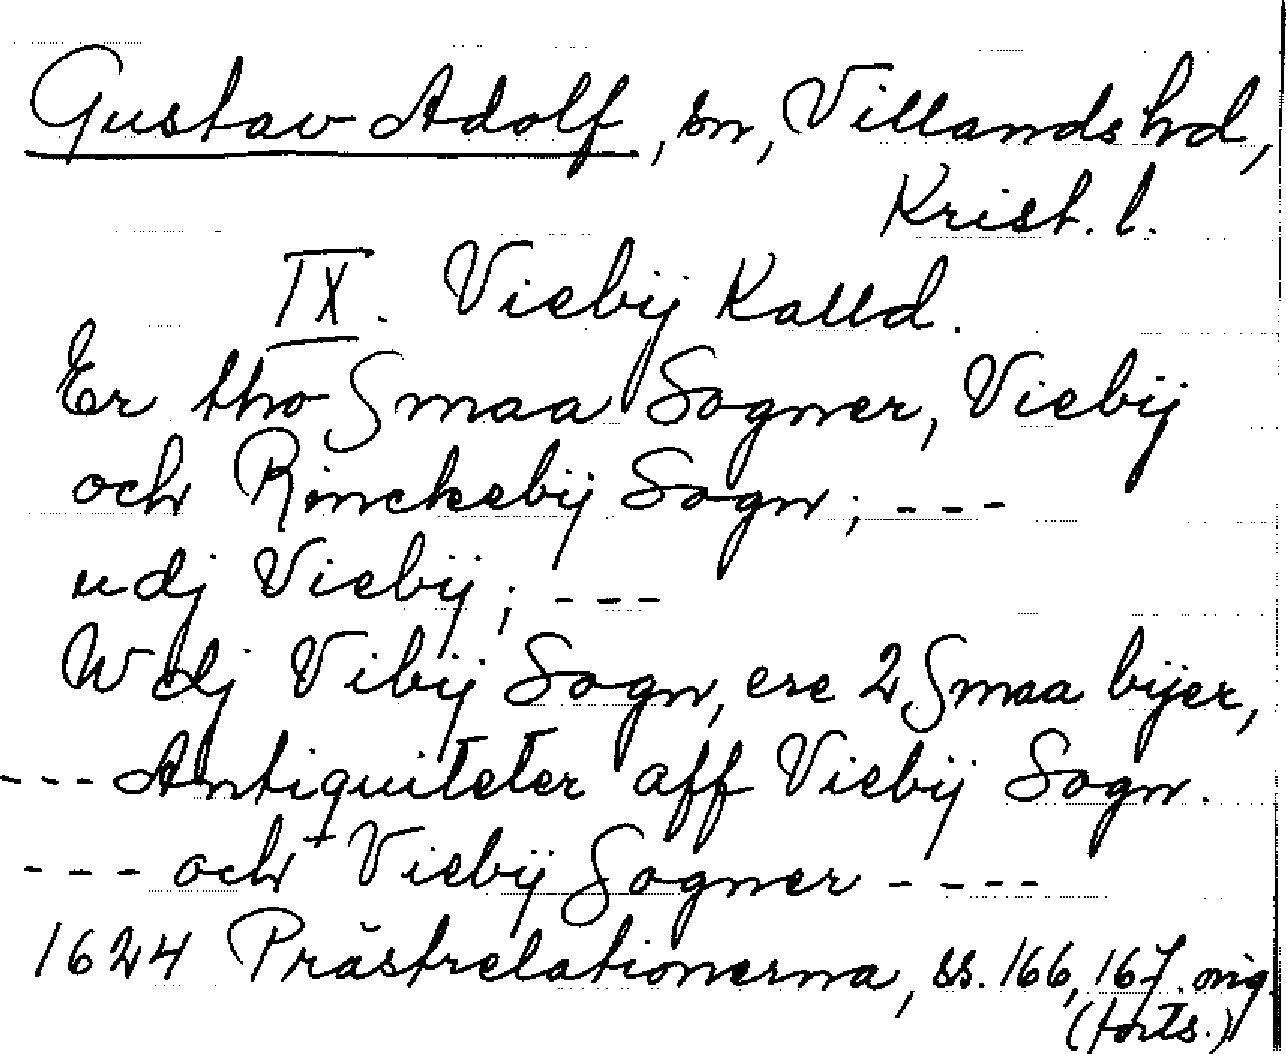 Gustav Adolf, sn, Villands hd,
Krist. l.
IX. Viebij Kalld.
Er tho Smaa Sogner, Viebij
och Rinckebij Sogn; ---
udj Viebij; ---
Wdj Vibij Sogn, ere 2 Smaa bijer,
--- Antiquiteter aff Viebij Sogn.
--- och + Viebij Sogner ----
1624 Prästrelationerna, ss. 166, 167. orig.
(forts.)